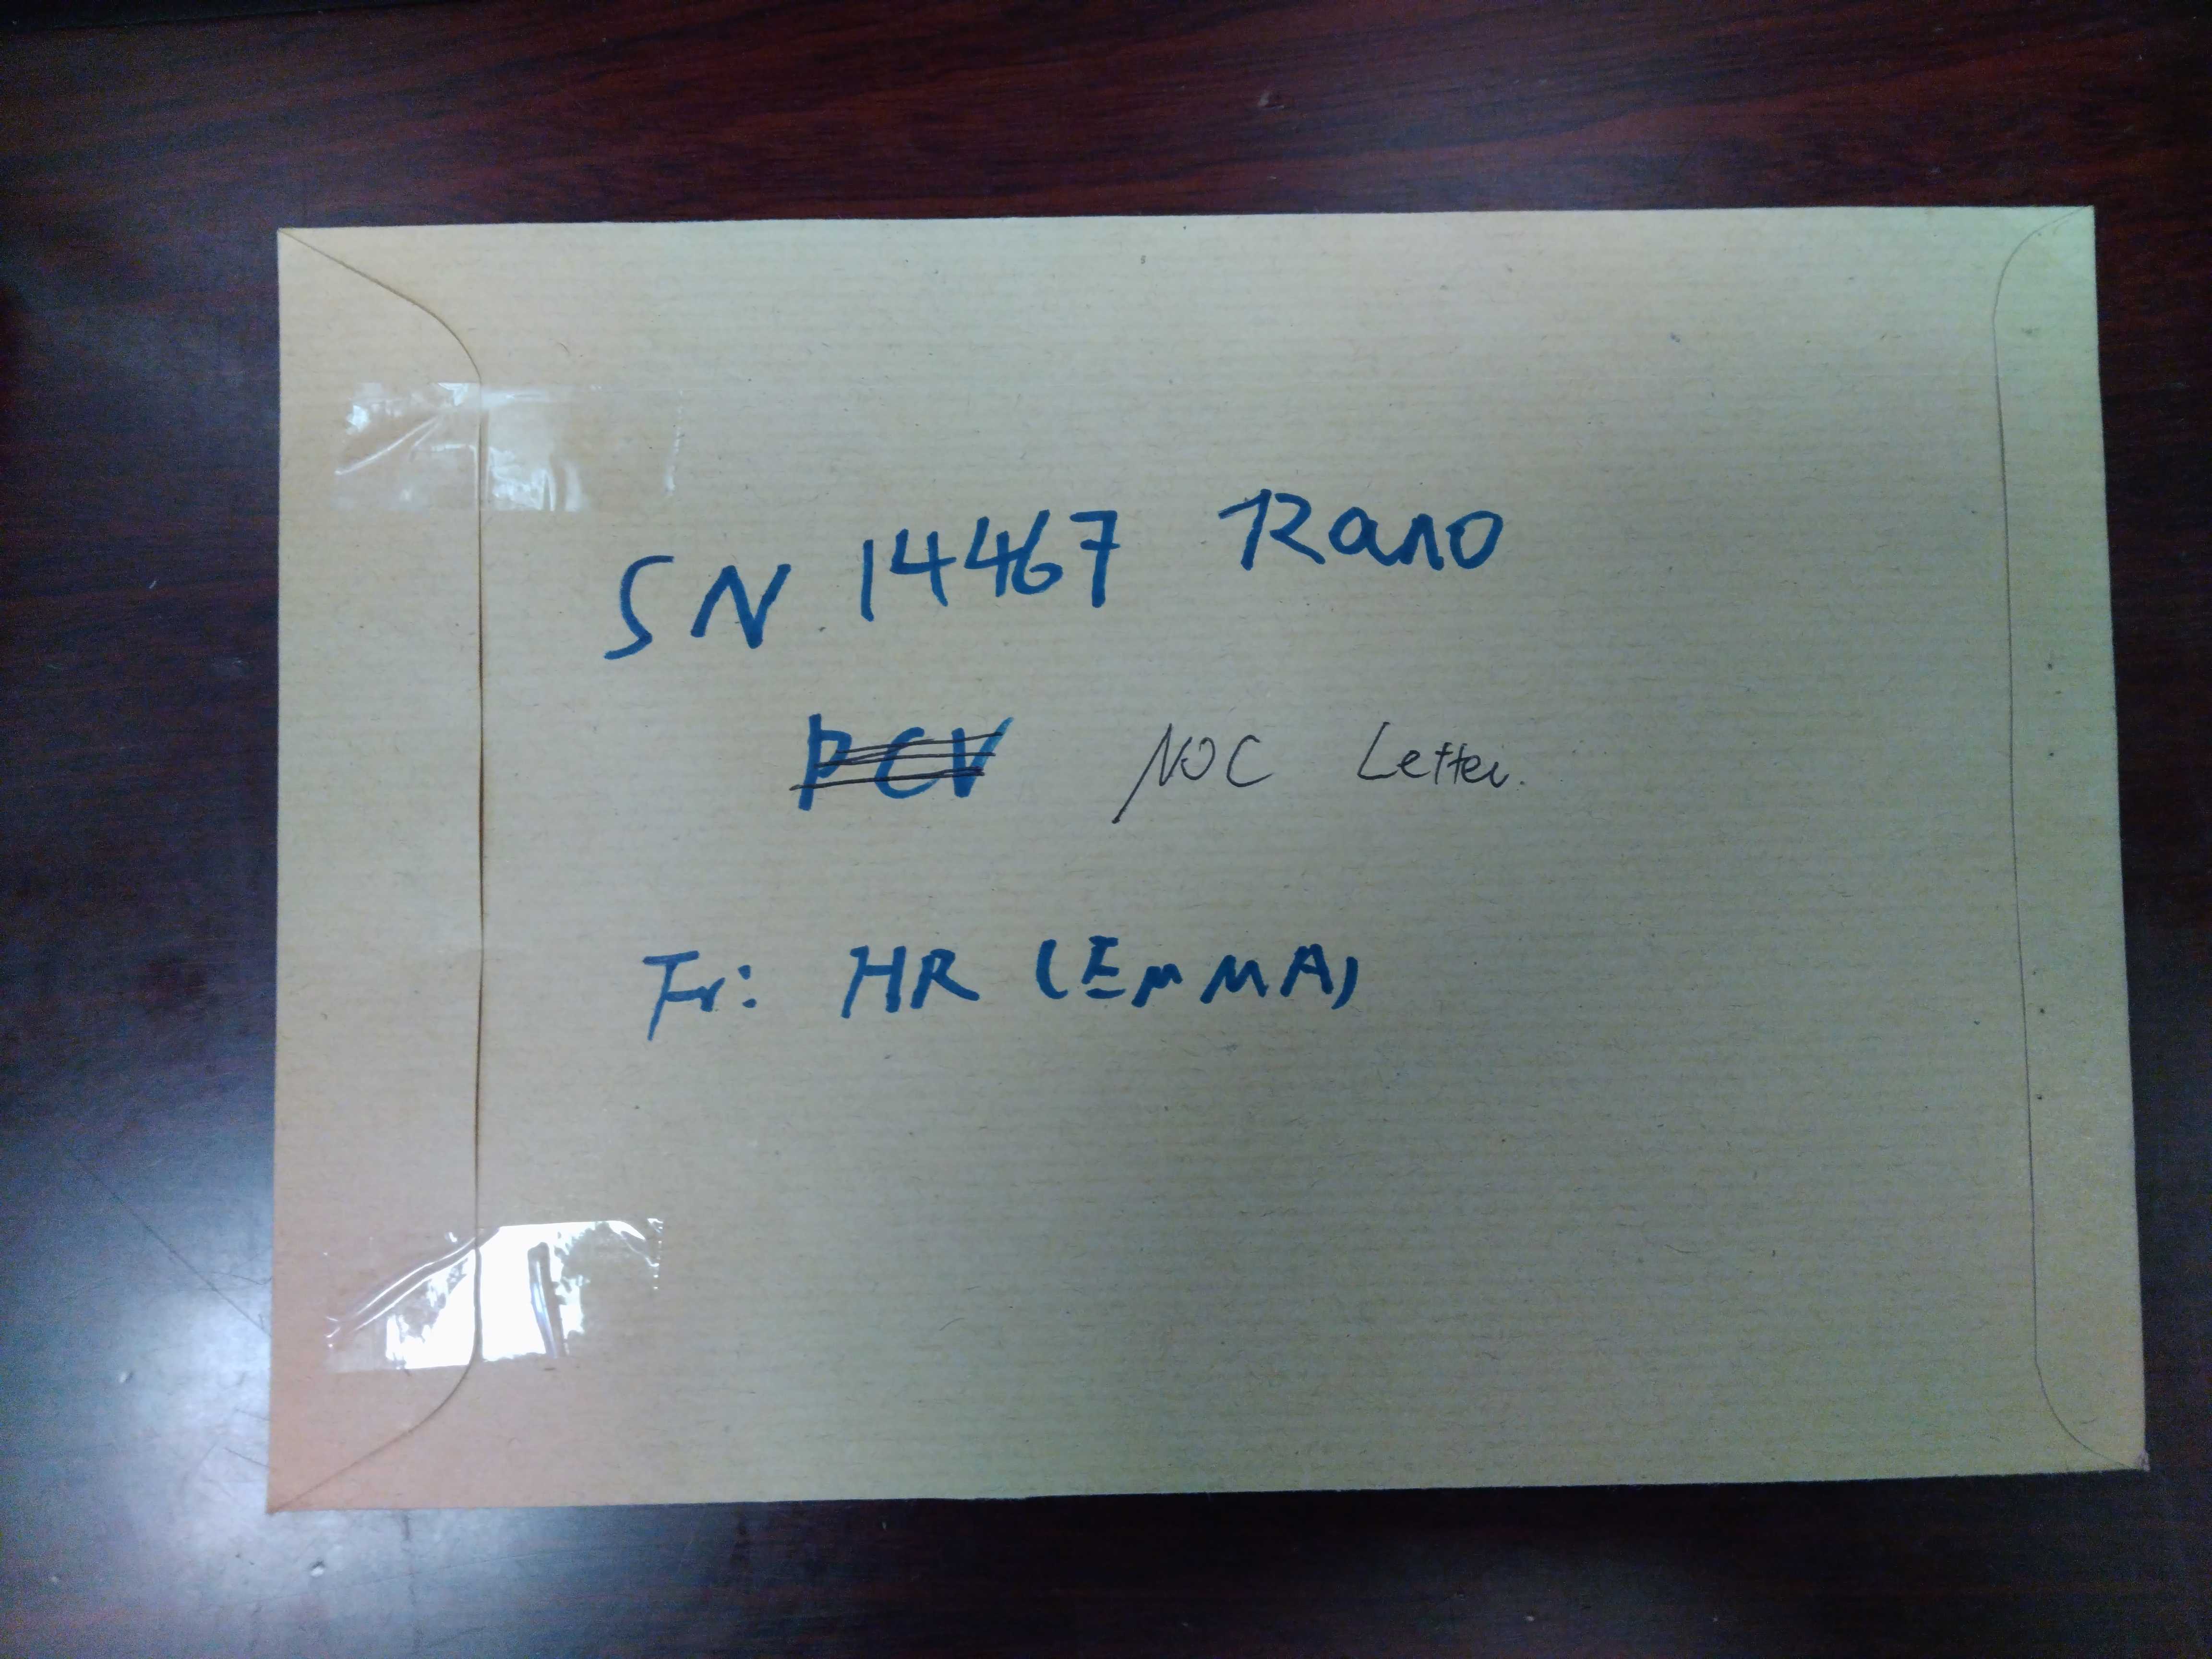 SN 14467 Rano
PCV NOC Letter.
Fr: HR (EMMA)